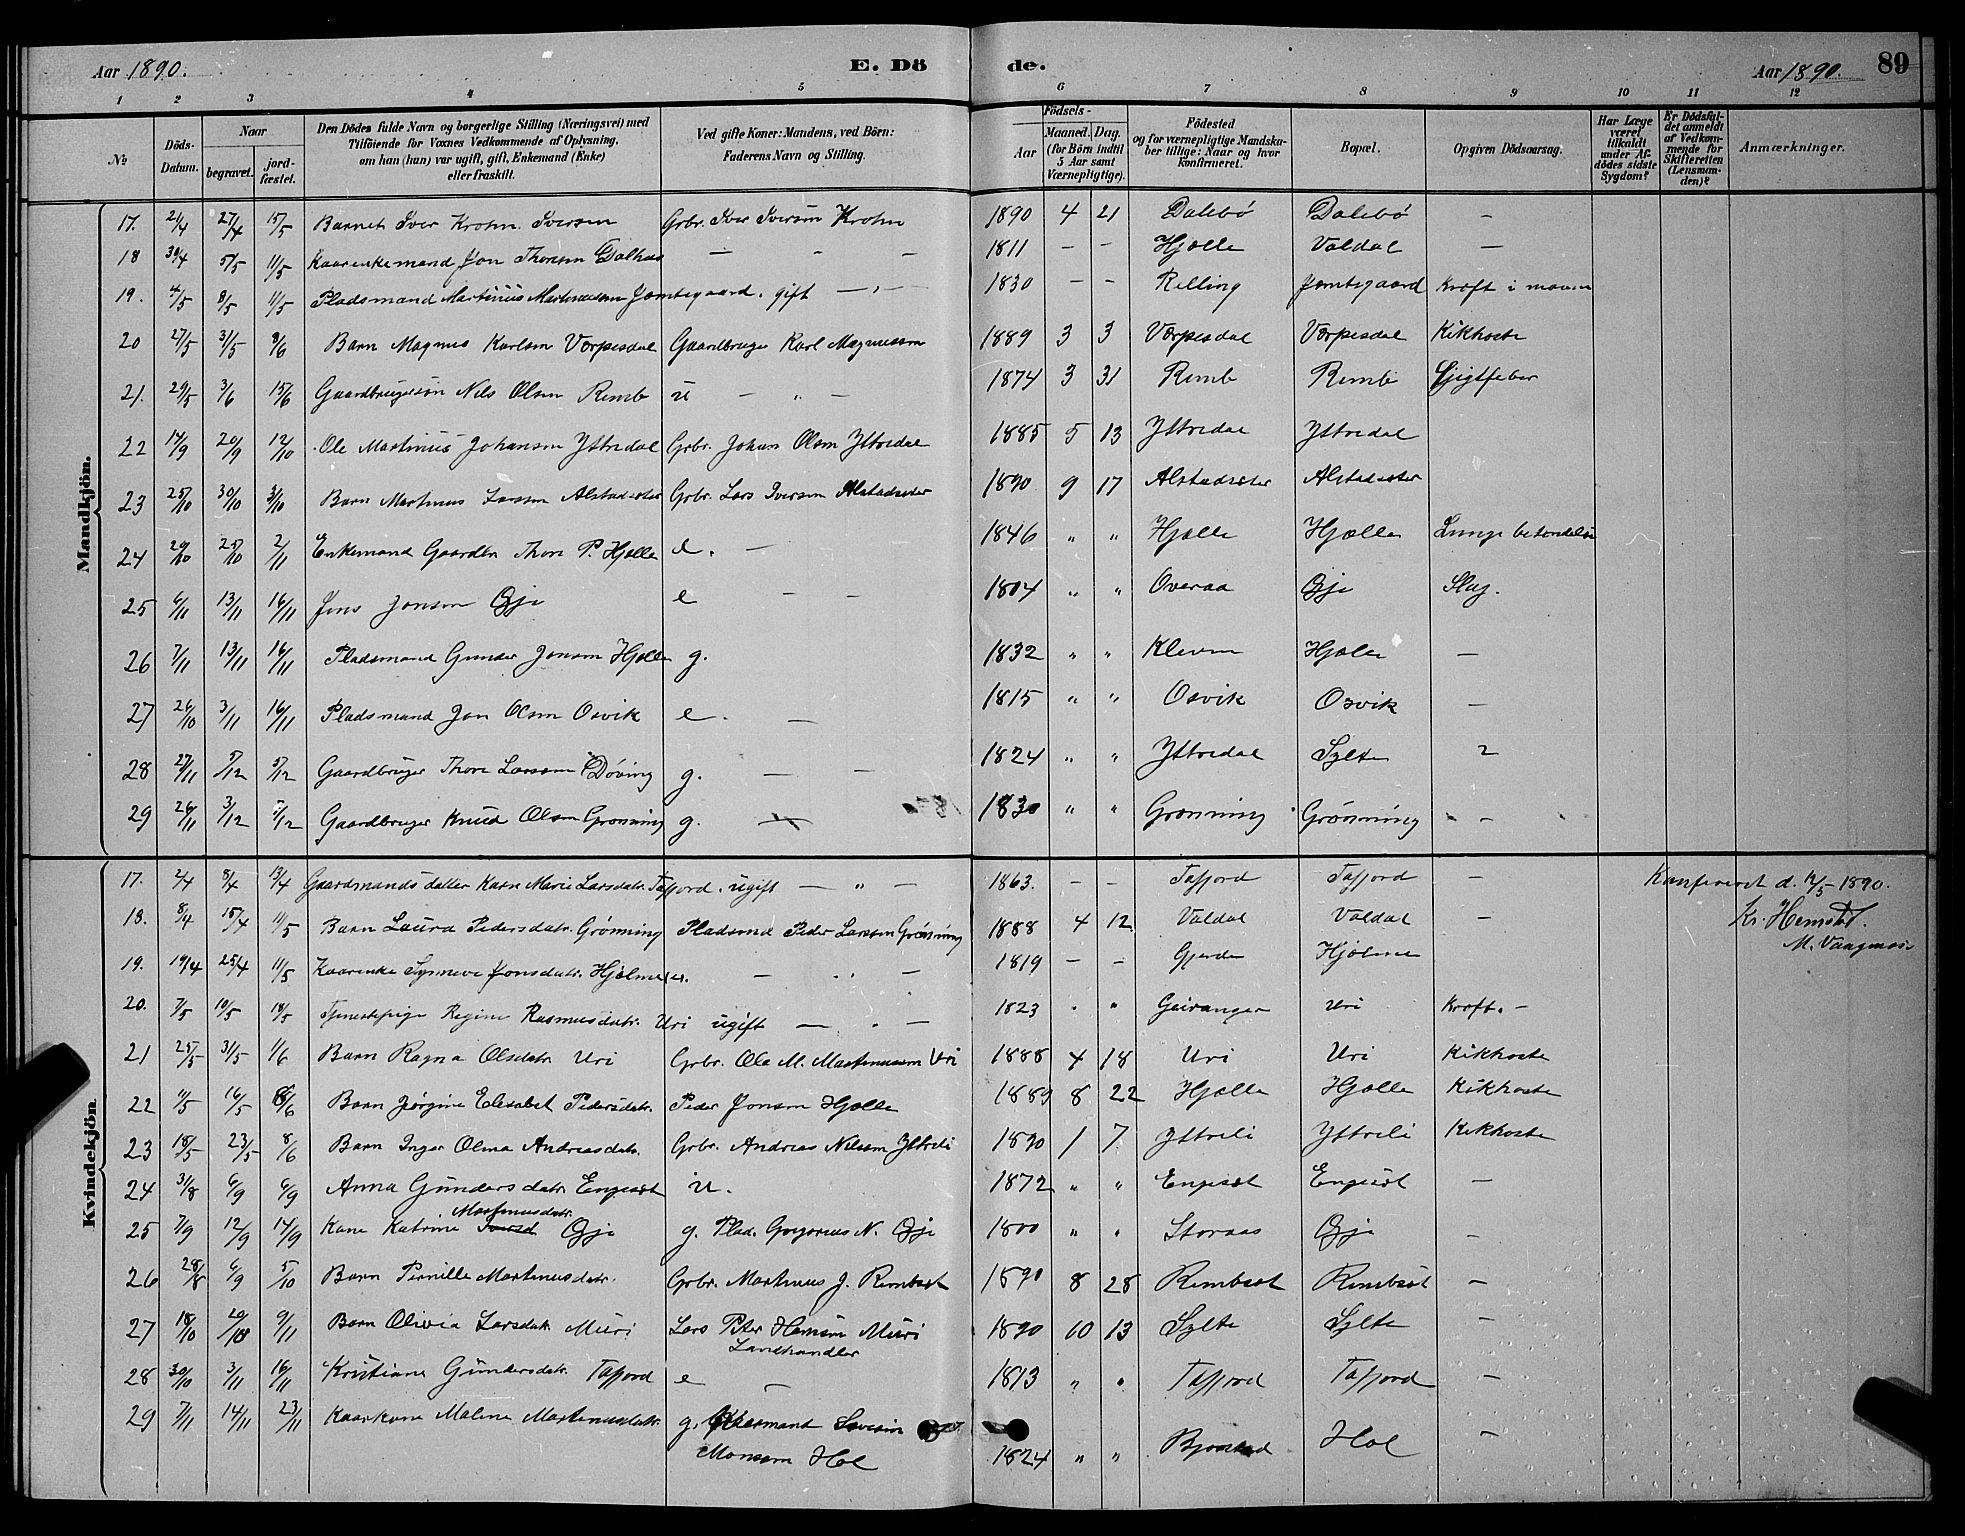 Aar 1890. E. Dö de. Aar 1890. 89
1 2 3 4 5 6 7 8 9 10 11 12
№ Döds-Datum. Naar begravet. jord-fæstet. Den Dödes fulde Navn og borgerlige Stilling (Næringsvei) med Tilföiende for Voxnes Vedkommende af Oplysning, om han (hun) var ugift, gift, Enkemand (Enke) eller fraskilt. Ved gifte Koner: Mandens, ved Börn: Faderens Navn og Stilling. Födsels- Aar Maaned. Dag. (for Börn indtil 5 Aar samt Værnepligtige). Födested og for værnepligtige Mandska-ber tillige: Naar og hvor konfirmeret. Bopæl. Opgiven Dödsaarsag. Har Læge været tilkaldt under Af-dödes sidste Sygdom? Er Dödsfal-det anmeldt af Vedkom-mende for Skifteretten (Lensman-den)? Anmærkninger.
Mandkjön.
17. 21/4 27/4 15/5 Barnet Iver Krohn Iversen Grbr. Iver Iversen Krohn 1890 4 21 Dalebö Dalebö —
18 30/4 5/5 11/5 Kaarenkemand Jon Thorsen Dalhus — - - 1811 - - Hjelle Valdal —
19. 4/5 8/5 11/5 Pladsmand Martinus Martinussen Jamtegaard. gift — " — 1830 - - Relling Jamtegaard Kræft i maven
20 27/5 31/5 8/6 Barn Magnus Karlsen Værpesdal Gaardbruger Karl Magnussen 1889 3 3 Værpesdal Værpesdal Kikhoste
21. 29/5 3/6 15/6 Gaardbrugersøn Nils Olsen Remb u — " — 1874 3 31 Remb Remb Gigtfeber
22 14/9 20/9 12/10 Ole Martinus Johansen Yttredal Grbr. Johan Olsen Yttredal 1885 5 13 Yttredal Yttredal
23 25/10 30/10 3/10 Barn Martinus Larsen Alstadsæter Grbr. Lars Iversen Alstadsæter 1890 9 17 Alstadsæter Alstadsæter
24 20/10 25/10 2/11 Enkemand Gaardbr. Thore P. Hjelle e. — 1846 " " Hjelle Hjelle Lungebetændelse
25 6/11 13/11 16/11 Jens Jonsen Gje e — — 1804 " " Overaa Gje Slag.
26 7/11 13/11 16/11 Pladsmand Gunder Jonsen Hjelle g. 1832 " " Kleven Hjelle —
27 26/10 3/11 16/11 Pladsmand Jon Olsen Osvik e. — 1815 " " Osvik Osvik —
28 27/11 5/12 5/12 Gaardbruger Thore Larsen Døving g. — — 1824 " " Yttredal Sylte
29 26/11 3/12 5/12 Gaardbruger Knud Olsen Grønning g. — 1830 " " Grønning Grønning —
Kvindekjön.
17. 2/4 8/4 13/4 Gaardmandsdatter Karn Marie Larsdatr. Tafjord. ugift — " — 1863. - - Tafjord Tafjord — Konfereret d. 12/5 1890.
18. 8/4 15/4 11/5 Barn Laura Pedersdatr. Grønning Pladsmd Peder Larsen Grønning 1888 4 12 Valdal Valdal — Kr. Hemstad.
19. 19/4 25/4 11/5 Kaarenke Synneve Jonsdatr. Hjelmer e. — " — 1819 - - Gjerde M. Vaagnæs
20. 7/5 10/5 18/5 Tjenestepige Regine Rasmusdatr. Uri ugift — " — 1823 " " Geiranger Uri Kræft. —
21 25/5 31/5 1/6 Barn Ragna Olsdatr Uri Grbr. Ole M. Martinussen Uri 1888 4 18 Uri Uri Kikhoste
22 11/5 16/5 8/6 Barn Jørgine Elisabet Pedersdatr. Peder Jonsen Hjelle 1889 8 22 Hjelle Hjelle Kikhoste
23 18/5 23/5 8/6 Barn Inger Olma Andreasdatr. Grbr. Andreas Nilsen Yttreli 1890 1 7 Yttreli Yttreli Kikhoste
24 31/8 6/9 6/9 Anna Gundersdatr. Engeset u. 1872 " " Engeset Engeset —
25 7/9 12/9 14/9 Kone Katrine Martinusdatr. Gje g. Plad. Gregorius N. Gje 1800 " " Storaas Gje —
26 28/8 6/9 5/10 Barn Pernille Martinusdatr. Grbr. Martinus J. Rembset 1890 8 28 Rembset Rembset —
27 18/10 20/10 9/11 Barn Olivia Larsdatr Muri Lars Peter Hansen Muri Landhandler 1890 10 13 Sylte Sylte —
28 30/10 3/11 16/11 Kristiane Gundersdatr. Tafjord e — 1813 " " Tafjord Tafjord —
29 7/11 14/11 23/11 Kaarkone Malene Martinusdatr. g. Kaarmand Severin
Monsen Hol 1824 " " Hol —